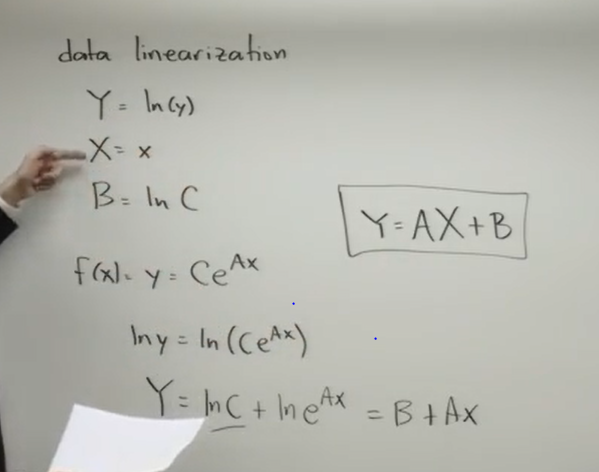 data linearization
Y = ln(y)
X = x
B = ln C
Y = AX + B
f(x) = y = Ce^{Ax}
ln y = ln (Ce^{Ax})
Y = ln C + ln e^{Ax} = B + Ax